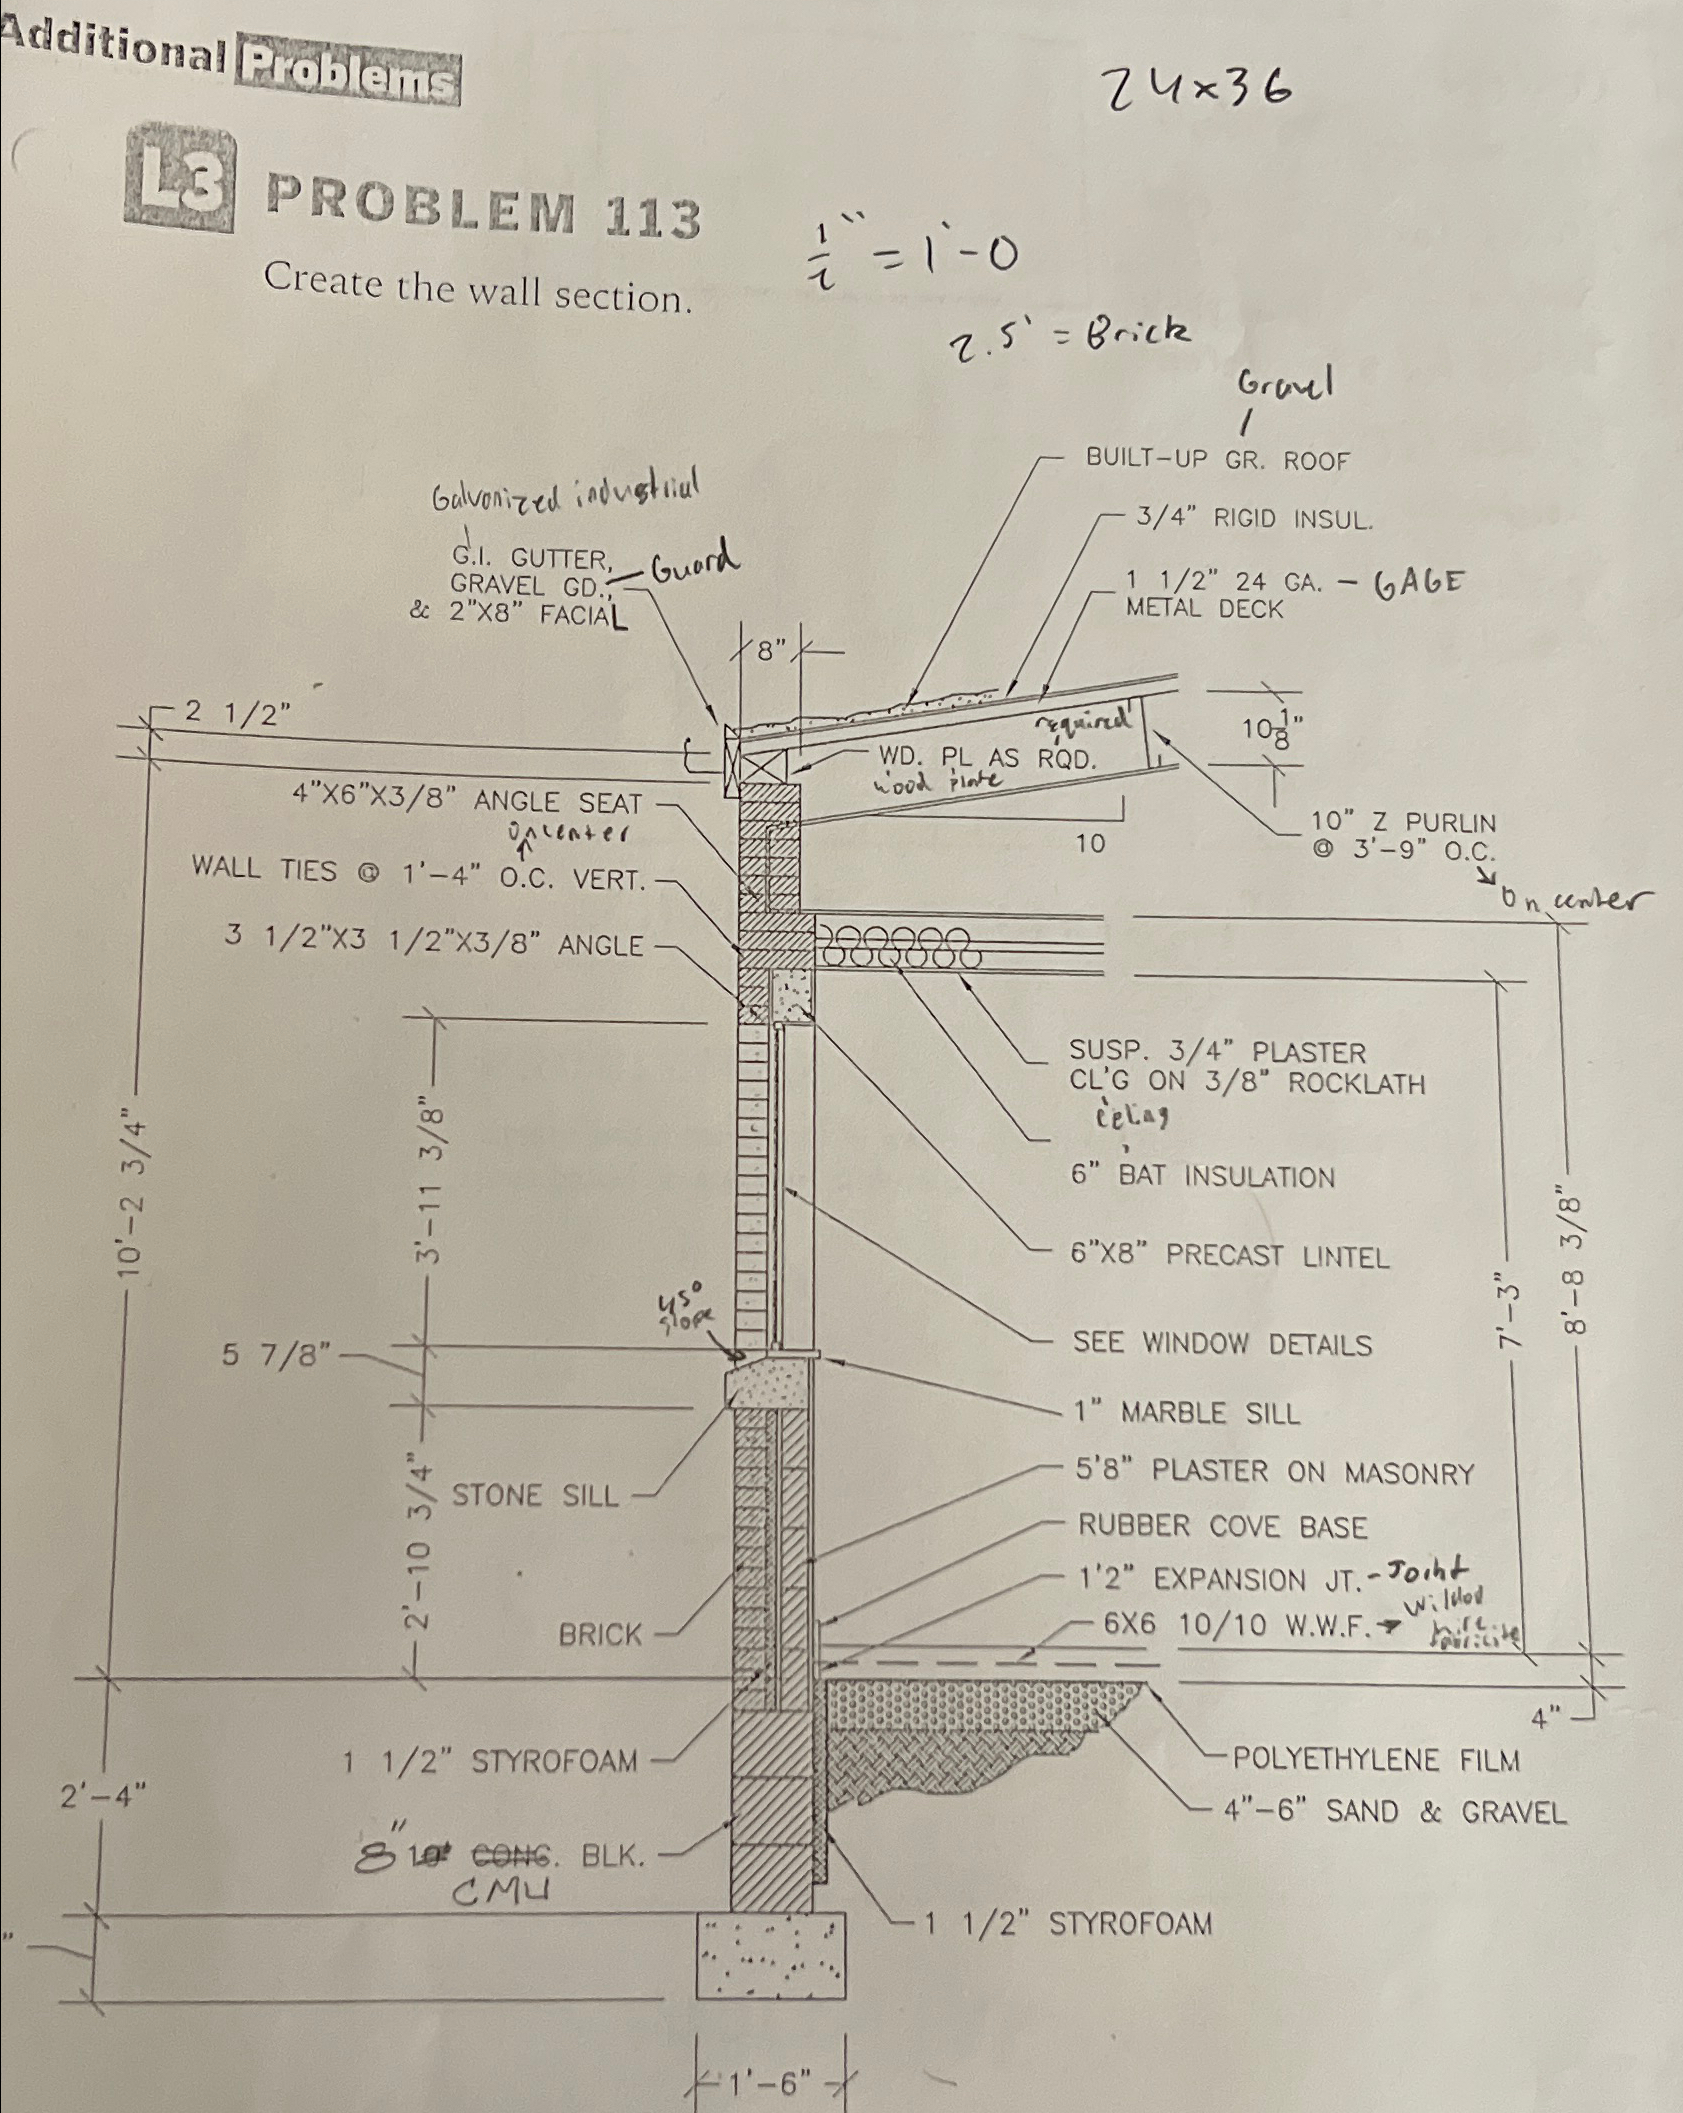 Additional Problems
24x36
L3 PROBLEM 113
Create the wall section.
1/2" = 1'-0
2.5' = Brick
Gravel
BUILT-UP GR. ROOF
3/4" RIGID INSUL.
1 1/2" 24 GA. - GAGE
METAL DECK
Galvanized industrial
G.I. GUTTER,
GRAVEL GD., Guard
& 2"X8" FACIAL
8"
2 1/2"
10 1/8"
required
WD. PL AS RQD.
wood plate
4"X6"X3/8" ANGLE SEAT
on center
10
10" Z PURLIN
@ 3'-9" O.C.
On center
WALL TIES @ 1'-4" O.C. VERT.
3 1/2"X3 1/2"X3/8" ANGLE
SUSP. 3/4" PLASTER
CL'G ON 3/8" ROCKLATH
6" BAT INSULATION
10'-2 3/4"
3'-11 3/8"
6"X8" PRECAST LINTEL
7'-3"
8'-8 3/8"
45°
slope
5 7/8"
SEE WINDOW DETAILS
1" MARBLE SILL
2'-10 3/4"
STONE SILL
5'8" PLASTER ON MASONRY
RUBBER COVE BASE
1'2" EXPANSION JT. - Joint
6X6 10/10 W.W.F.
BRICK
4"
1 1/2" STYROFOAM
POLYETHYLENE FILM
2'-4"
4"-6" SAND & GRAVEL
8" 10" CONC. BLK.
CMU
1 1/2" STYROFOAM
"
1'-6"